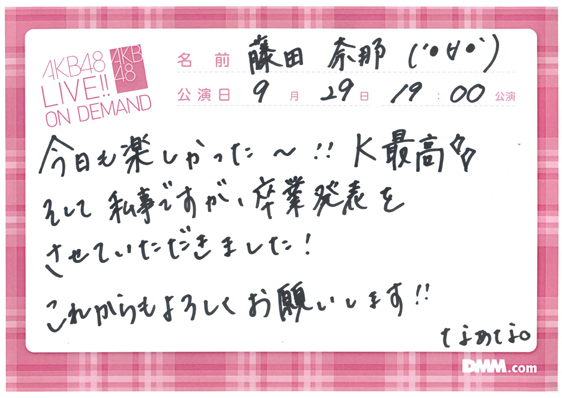 AKB48
LIVE!!
ON DEMAND
AKB
48
名前 藤田 奈那 (´°∀°`)
公演日 9月29日 19:00公演
今日も楽しかった〜!! K最高
そして私事ですが、卒業発表を
させていただきました!
これからもよろしくお願いします!!
DMM.com